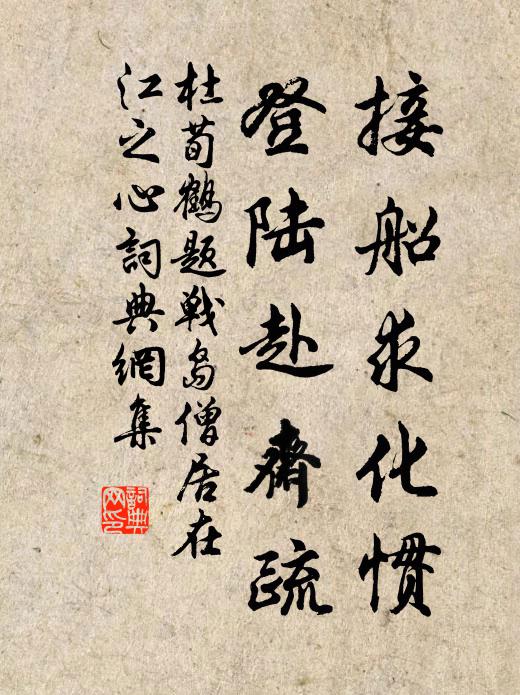 接船求化惯
登陆赴斋疏
杜荀鹤题战岛僧居在
江之心词典網集
詞典網印